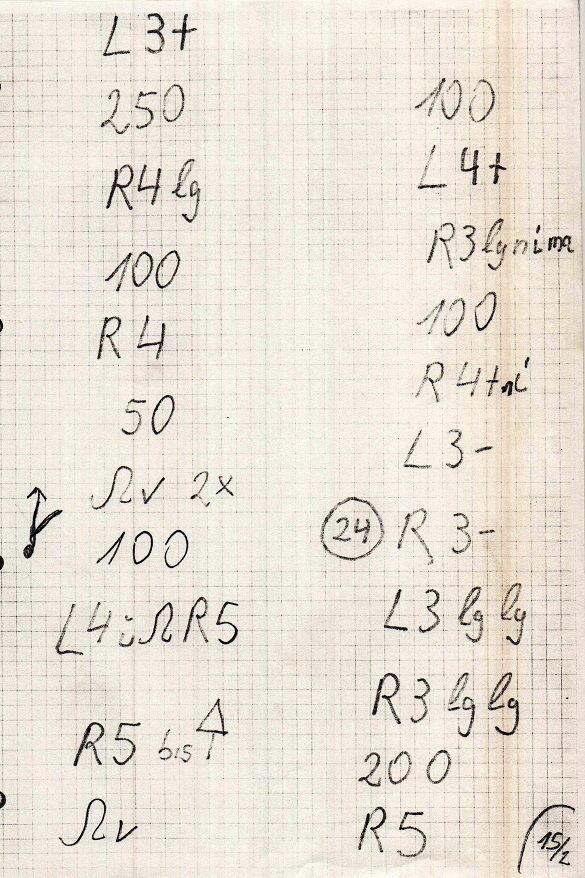 L3+
250
R4 lg
100
R4
50
Ωv 2x
100
L4 ü Ω R5
R5 bis
Ωv
100
L4+
R3 lg ni ma
100
R4+ ni
L3-
24 R3-
L3 lg lg
R3 lg lg
200
R5
15/2